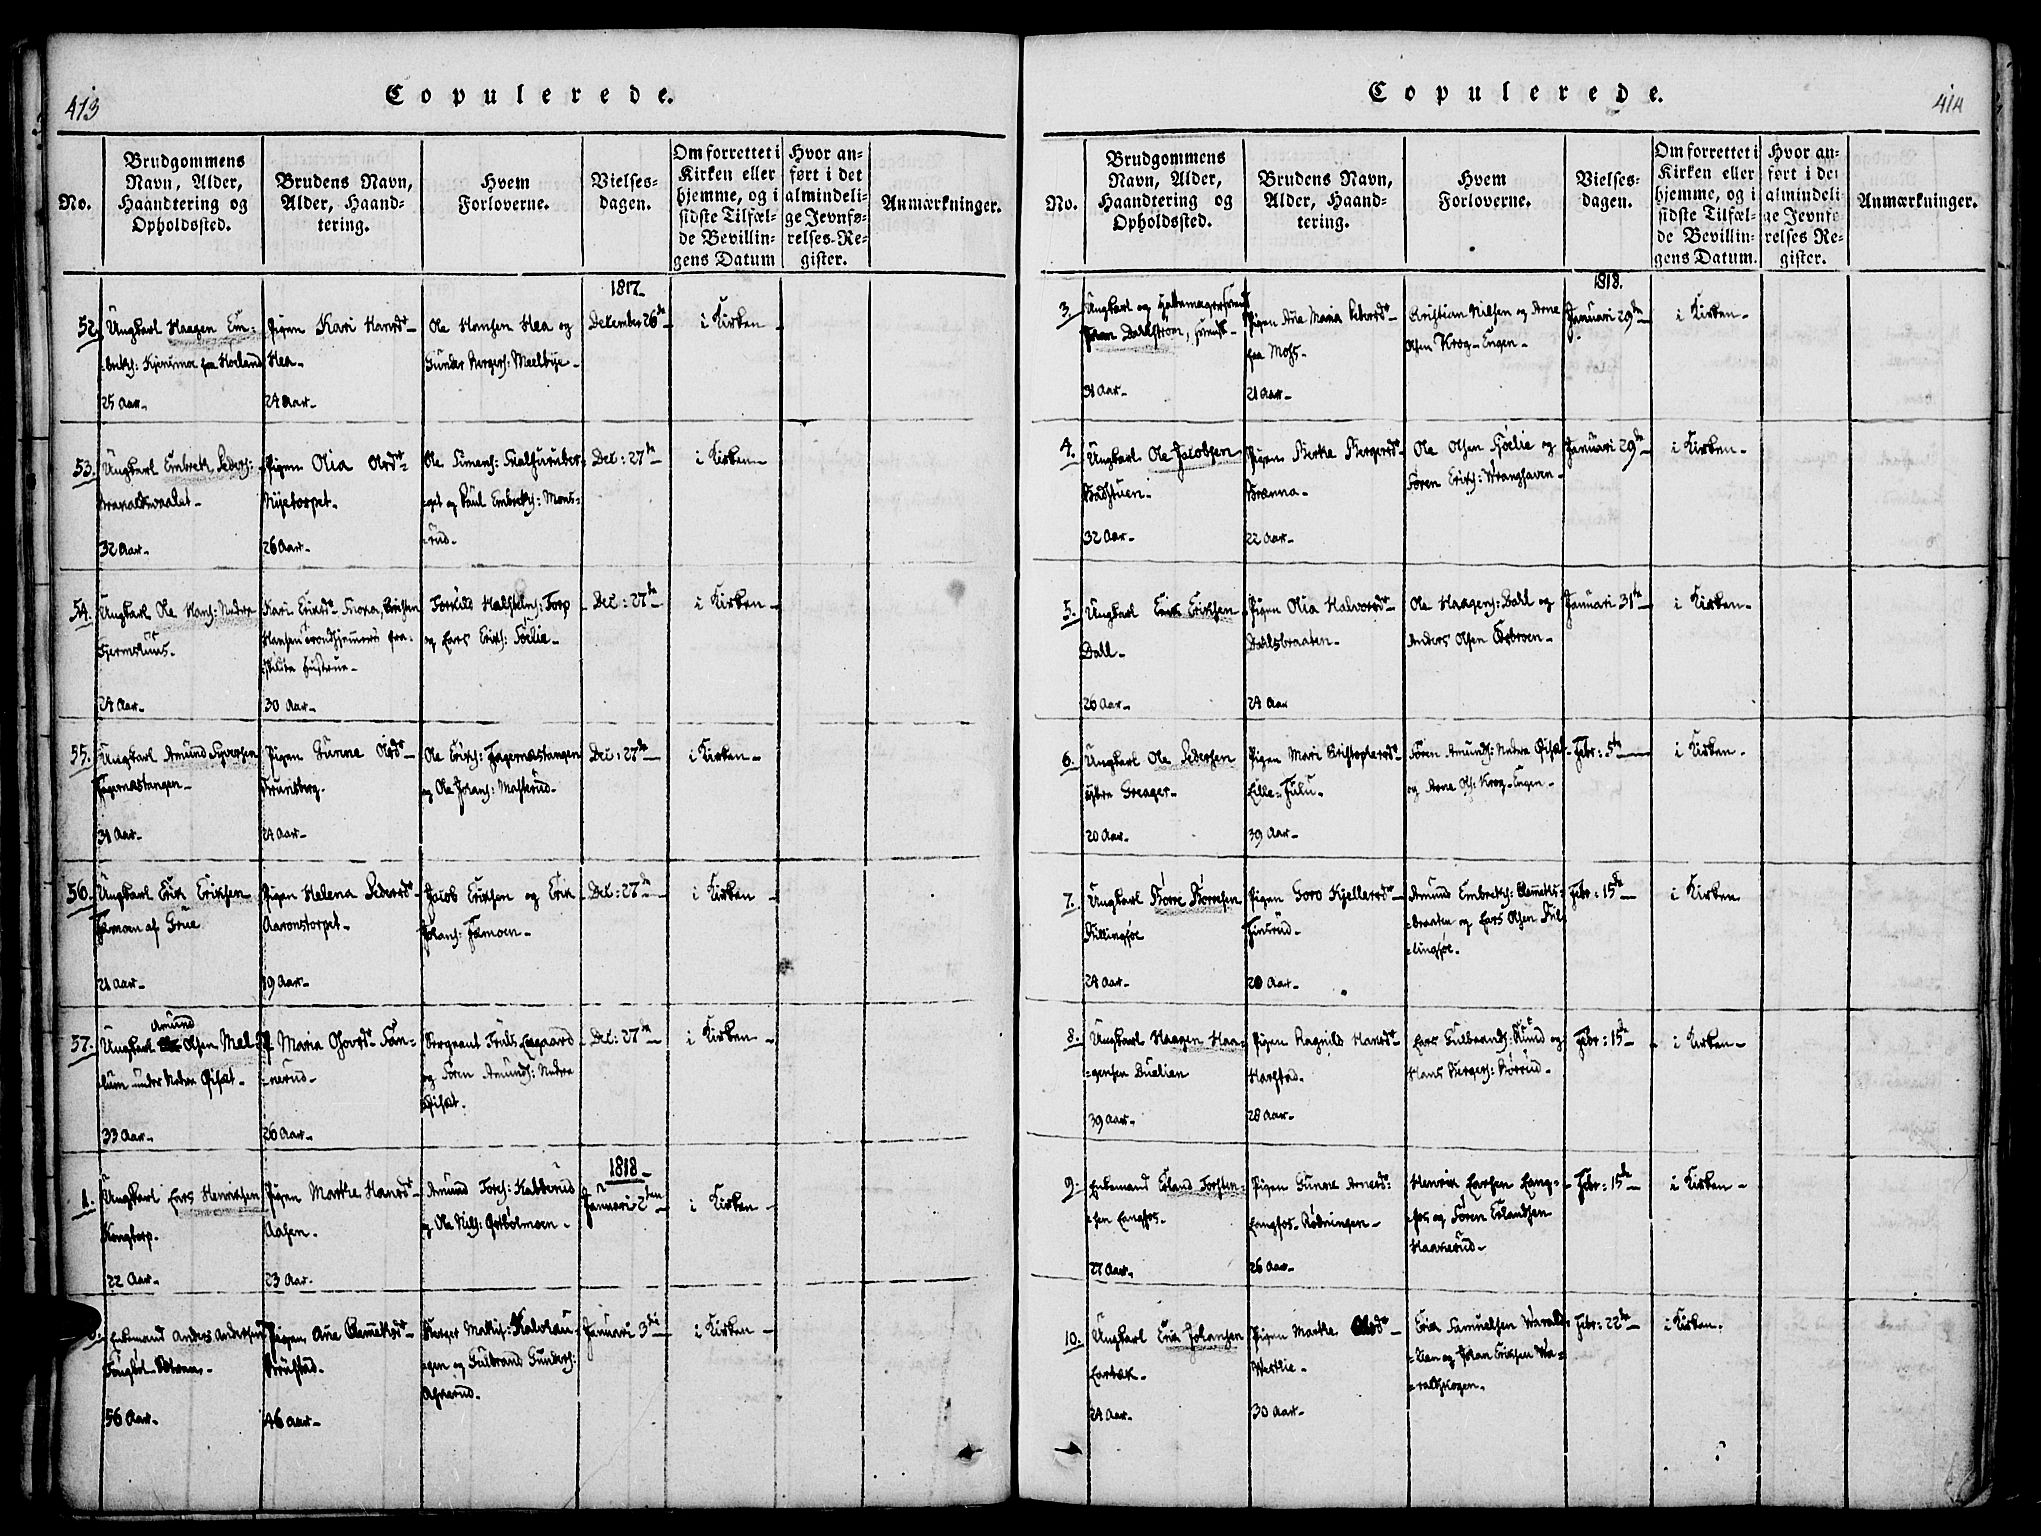 413
Copulerede.
No.
Brudgommens Navn, Alder, Haandtering og Opholdssted.
Brudens Navn, Alder, Haandtering.
Hvem Forloverne.
Vielsesdagen.
Om forrettet i Kirken eller hjemme, og i sidste Tilfælde Bevillingens Datum
Hvor anført i det almindelige Jevnførelses-Register.
Anmærkninger.
1817
52. Ungkarl Haagen Em-
25 Aar
Pigen Kari Hansd.
Hea
24 Aar
Ole Hansen Hea og
Gunder Bergers: Meelbye
December 26de
i Kirken
53. Ungkarl Embrek Peders:
32 Aar
Pigen Olia Olsd.
Nyetorpet
26 Aar
Ole Simens:
og Paul Embreks: Mons-
rud
Dec: 27de
i Kirken
54. Ungkarl Ole Hans: Nedre
24 Aar
Kari Eriksd.
30 Aar
Torkild Halsteins: Torp
og Lars Eriks: Sõelie
Dec: 27de
i Kirken
55. Ungkarl Amund Syversen
Fagernæstangen
31 Aar
Pigen Gunne Olsd.
24 Aar
Ole Eriks: Fagernæstangen
og Ole Johans: Masterud
Dec: 27de
i Kirken
56. Ungkarl Erik Eriksen
Famoen af Grue
21 Aar
Pigen Helena Pedersd.
Aaronstorpet
19 Aar
Jacob Eriksen og Erik
Johans: Famoen
Dec: 27de
i Kirken
57. Ungkarl Amund Olsen Mel-
lum under Nedre Øiset
33 Aar
P. Maria Gjovsd. San-
nerud
26 Aar
Sergeant Truls Leegaard
og Sören Amunds: Nedre
Øiset
Dec: 27de
i Kirken
1818
1. Ungkarl Lars Henriksen
Kongtorp
22 Aar
Pigen Marthe Hansd.
Aasen
23 Aar
Amund Tores: Kabberud
og Ole Nils:
Januari 2den
i Kirken
Enkemand Anders Andersen
56 Aar
Pigen Ane Clemetsd.
46 Aar
og Gulbrand Gunders:
Januari 3die
i Kirken
Copulerede.
414
No.
Brudgommens Navn, Alder, Haandtering og Opholdssted.
Brudens Navn, Alder, Haandtering.
Hvem Forloverne.
Vielsesdagen.
Om forrettet i Kirken eller hjemme, og i sidste Tilfælde Bevillingens Datum.
Hvor anført i det almindelige Jevnførelses Register.
Anmærkninger.
1818.
3. Ungkarl og Hattemagersvend
Johan Dahlstrøm,
31 Aar
Pigen Ane Maria Pedersd.
fra Moss
21 Aar
Kristian Nilsen og Arne
Olsen Krog-Engen
Januari 29de
i Kirken
4. Ungkarl Ole Jacobsen
Badstuen
32 Aar
Pigen Berthe Bergersd.
Brænna
22 Aar
Ole Olsen Sõelie og
Sören Eriks: Vranghaven
Januari 29de
i Kirken
5. Ungkarl Erik Eriksen
Dall
26 Aar
Pigen Olia Halvorsd.
Dahlsbraaten
24 Aar
Ole Haagens: Dall og
Anders Olsen
Januari 31te
i Kirken
6. Ungkarl Ole Pedersen
Greager
20 Aar
Pigen Mari Kristophersd.
Lille-Fulu
39 Aar
Sören Amunds: Nedre Øiset
og Arne Ols: Krog-Engen
Febr: 5te
i Kirken
7. Ungkarl Börre Börresen
Killingsöe
24 Aar
Pigen Goro Kjellersd.
Finsrud
20 Aar
Amund Embreks: Clemets-
braaten og Lars Olsen Kil-
lingsöe
Febr: 15de
i Kirken
8. Ungkarl Haagen Haa-
gensen Duelien
39 Aar
Pigen Ragnild Hansd.
Harstad
28 Aar
Lars Gulbrands: Rund og
Hans Bergers: Börrud
Febr: 15de
i Kirken
9. Enkemand Erland Torsten-
sen Langfos
27 Aar
Pigen Gunne Arnesd:
Langfos-Rødningen
26 Aar
Henrik Larsen Lang-
fos og Sören Erlandsen
Haakerud
Febr: 15de
i Kirken
10. Ungkarl Erik Johansen
Lartæk
24 Aar
Pigen Marthe Olsd.
Westlie
30 Aar
Erik Samuelsen
og Johan Eriksen
Febr: 22de
i Kirken